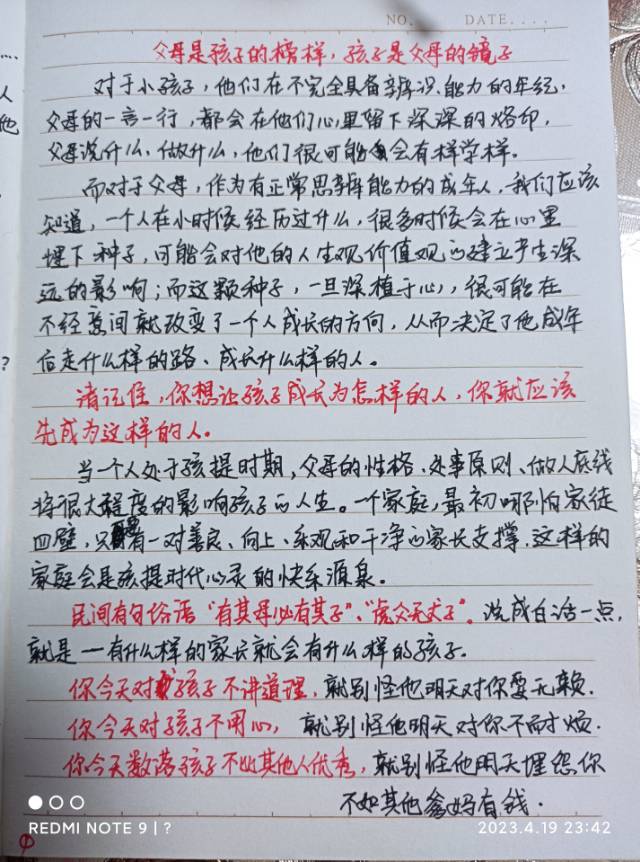 NO. DATE....
父母是孩子的榜样，孩子是父母的镜子
对于小孩子，他们在不完全具备辨识能力的年纪，
父母的一言一行，都会在他们心里留下深深的烙印，
父母说什么、做什么，他们很可能会有样学样。
而对于父母，作为有正常思辨能力的成年人，我们应该
知道，一个人在小时候经历过什么，很多时候会在心里
埋下种子，可能会对他的人生观价值观的建立产生深
远的影响；而这颗种子，一旦深植于心，很可能在
不经意间就改变了一个人成长的方向，从而决定了他成年
后走什么样的路、成长什么样的人。
请记住，你想让孩子成长为怎样的人，你就应该
先成为这样的人。
当一个人处于孩提时期，父母的性格、处事原则、做人底线
将很大程度的影响孩子的人生。一个家庭，最初哪怕家徒
四壁，只有一对善良、向上、乐观和干净的家长支撑，这样的
家庭会是孩提时代心灵的快乐源泉。
民间有句俗语"有其母必有其子"、"虎父无犬子"。说成白话一点，
就是一有什么样的家长就会有什么样的孩子。
你今天对孩子不讲道理，就别怪他明天对你耍无赖．
你今天对孩子不用心，就别怪他明天对你不耐烦．
你今天数落孩子不比其他人优秀，就别怪他明天埋怨你
不如其他爸妈有钱．
人
他
?
REDMI NOTE 9 | ?
2023.4.19 23:42